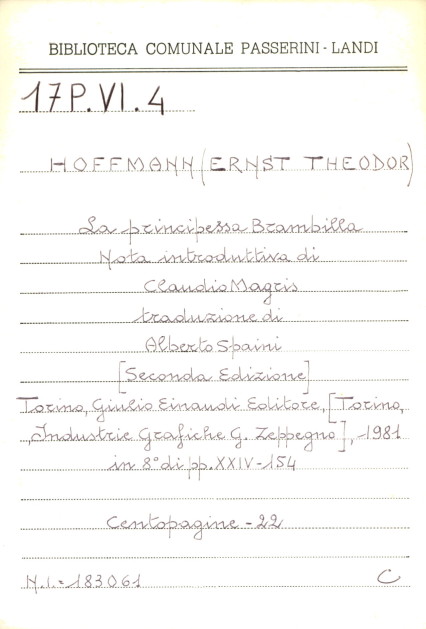 BIBLIOTECA COMUNALE PASSERINI - LANDI
17P.VI.4
HOFFMANN (ERNST THEODOR)
La principessa Brambilla
Nota introduttiva di
Claudio Magris
traduzione di
Alberto Spaini
[Seconda Edizione]
Torino, Giulio Einaudi Editore, [Torino,
Industrie Grafiche G. Zeppegno], 1981
in 8° di pp. XXIV-154
Centopagine - 22
N.I. = 183061 C